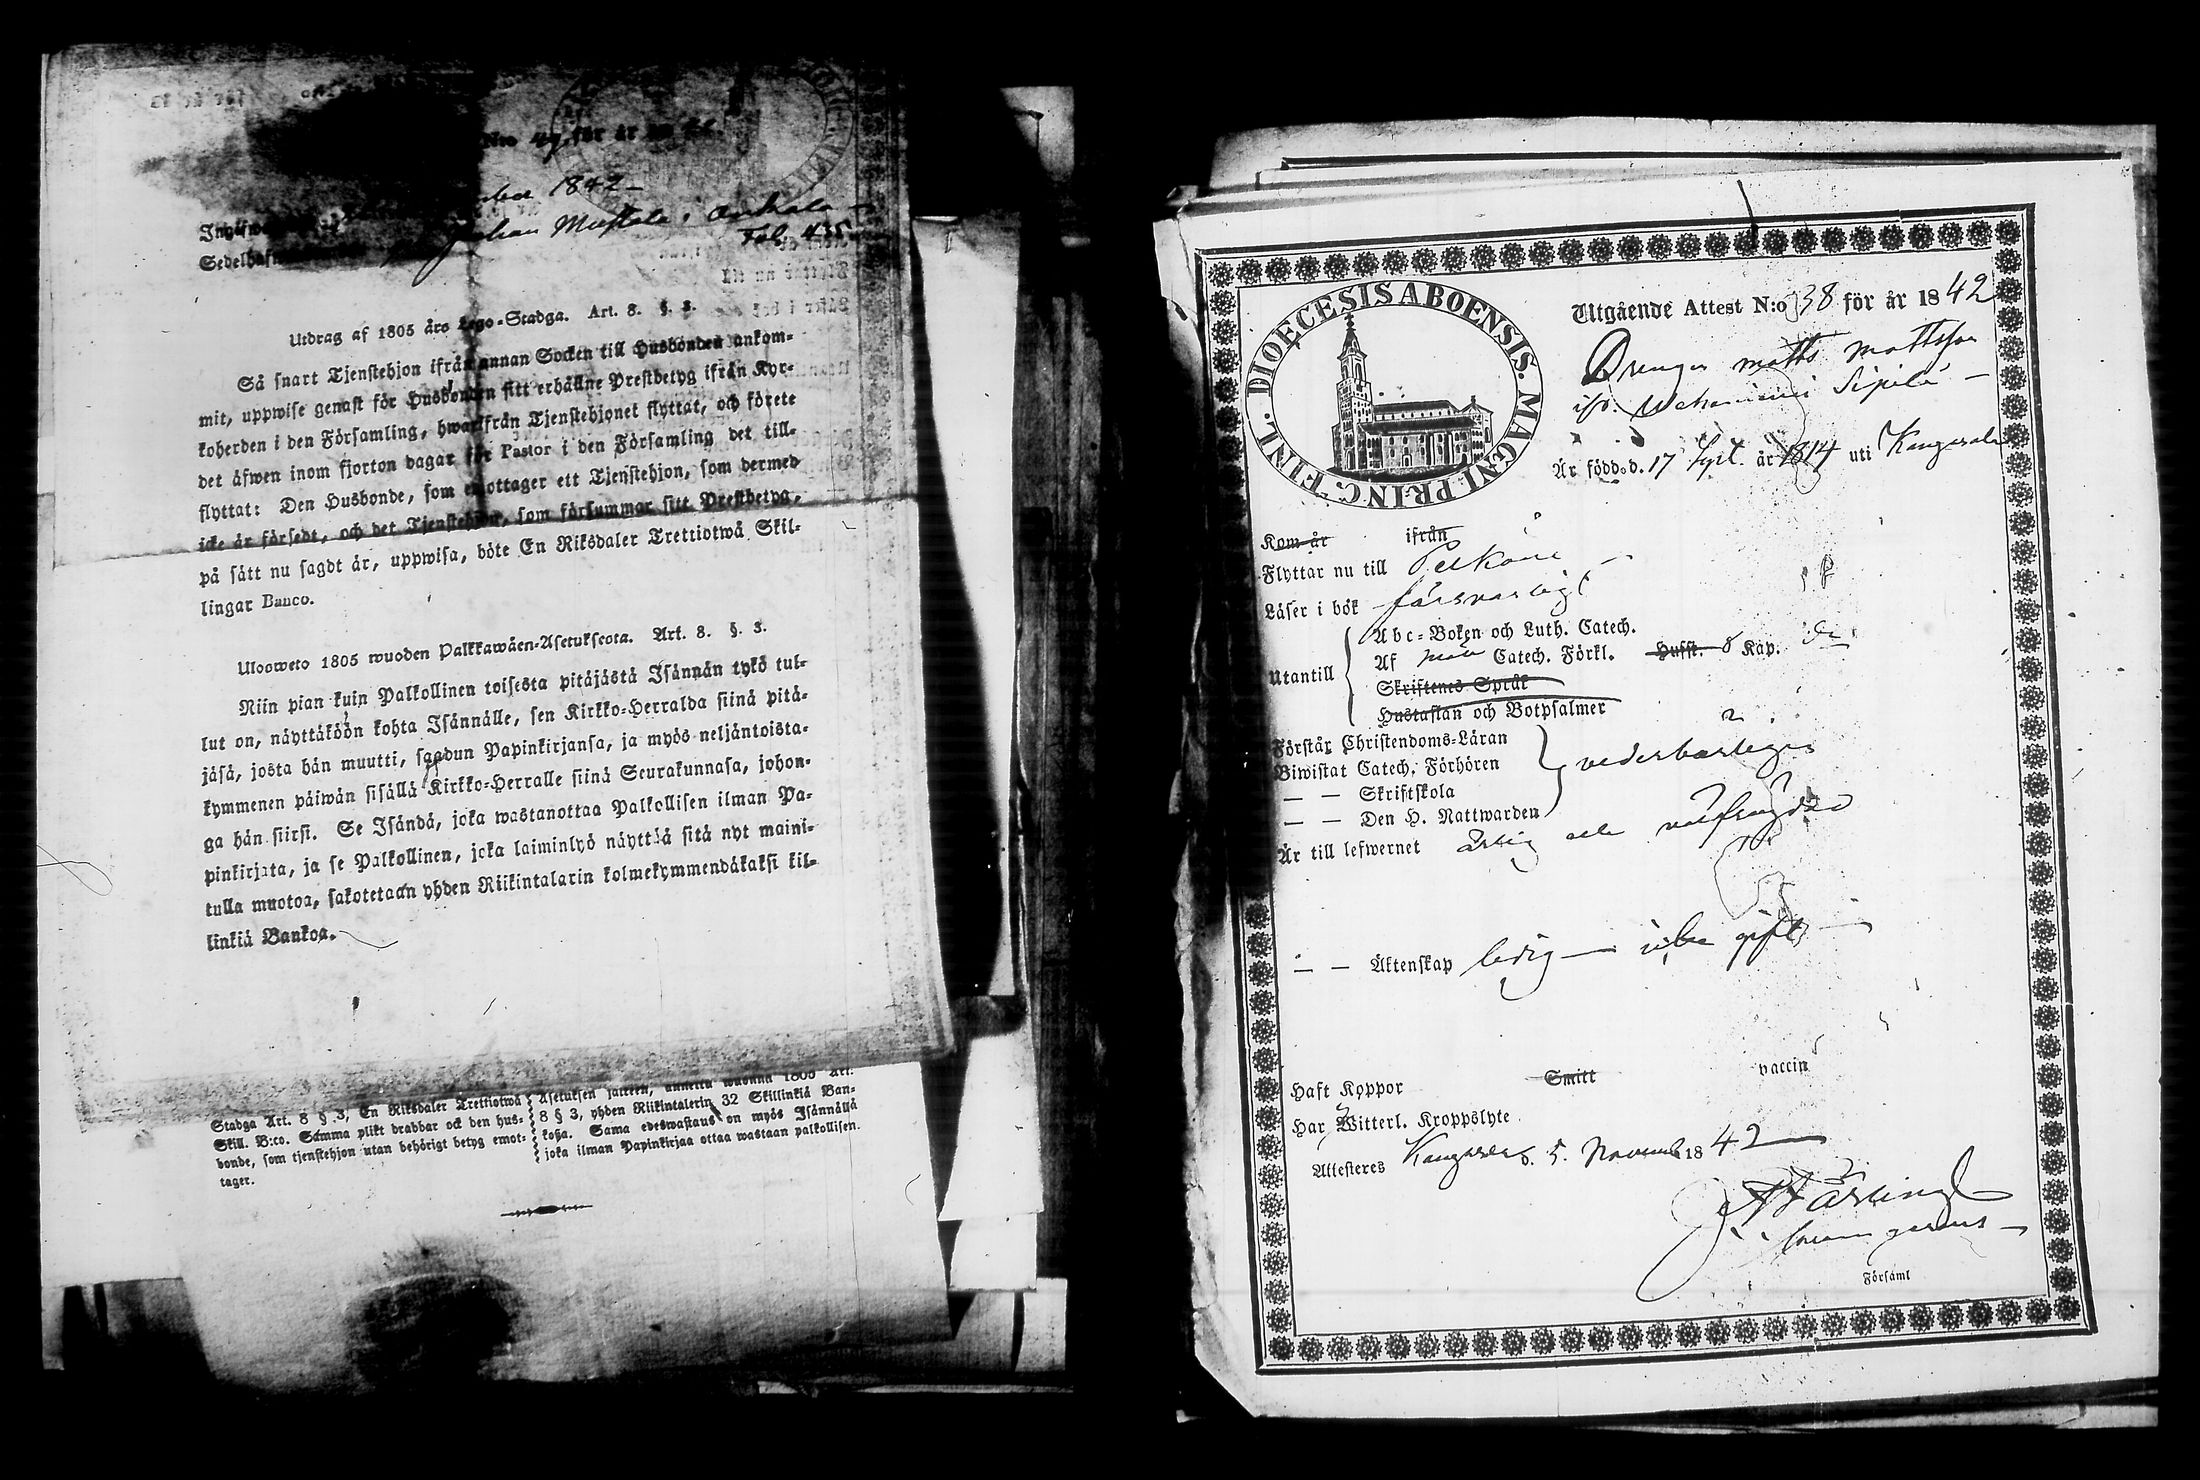 N:o 49 för år 18 42.
1842 –
Johan Mustala i Ankola –
Sedelhaf
Fol. 435
Utdrag af 1805 års Lego-Stadga. Art. 8. §. 3.
Så snart Tjenstehjon ifrån annan Socken till Husbonden ankom-
mit, uppwise genast för Husbonden sitt erhållne Prestbetyg ifrån Kyr-
koherden i den Församling, hwarifrån Tjenstehjonet flyttat, och förete
det äfwen inom fjorton dagar för Pastor i den Församling det till-
flyttat: Den Husbonde, som emottager ett Tjenstehjon, som dermed
icke är försedt, och det Tjenstehjon, som försummar sitt Prestbetyg,
på sätt nu sagdt är, uppwisa, böte En Riksdaler Trettiotwå Skil-
lingar Banco.
Ulosweto 1805 wuoden Palkkawäen-Asetuksesta. Art. 8. §. 3.
Niin pian kuin Palkollinen toisesta pitäjästä Isännän tykö tul-
lut on, näyttäköön kohta Isännälle, sen Kirkko-Herralda siinä pitä-
jäsä, josta hän muutti, saadun Papinkirjansa, ja myös neljäntoista-
kymmenen päiwän sisällä Kirkko-Herralle siinä Seurakunnasa, johon-
ga hän siirsi. Se Isändä, joka wastanottaa Palkollisen ilman Pa-
pinkirjata, ja se Palkollinen, joka laiminlyö näyttää sitä nyt maini-
tulla muotoa, sakotetaan yhden Riikintalarin kolmekymmendäkaksi kil-
linkiä Bankoa.
Stadga Art. 8 § 3, En Riksdaler Trettiotwå
Skill. B:co. Samma plikt drabbar ock den hus-
bonde, som tjenstehjon utan behörigt betyg emot-
tager.
Asetuksen jälkeen, annettu wuonna 1805 Art.
8 § 3, yhden Riikintalerin 32 Skillinkiä Ban-
kossa. Sama edeswastaus on myös Isännällä
joka ilman Papinkirjaa ottaa wastaan palkollisen.
DIOECESIS ABOENSIS. MAGNI PRINC. FINL.
Utgående Attest N:o 38 för år 1842
Drengen Matts Mattsson
ifr. Wehoniemi Sipilä –
Är född d. 17 Sept. år 1814 uti Kangasala
Kom år ifrån
Flyttar nu till Pelkäne –
Läser i bok försvarligt
Utantill
Abc-Boken och Luth. Catech.
Af Catech. Förkl. Hufst. 8 Kap.
Skriftenes Språk
Hustaflan och Botpsalmer
Förstår Christendoms-Läran
Biwistat Catech. Förhören
— — Skriftskola
— — Den H. Nattwarden
vederbörligen
Är till lefwernet ärlig och välfrägdad
— — Äktenskap ledig – icke gift –
Haft Koppor Smitt vaccin
Har Witterl. Kroppslyte
Attesteres Kangasala d. 5. November 1842 –
Församl